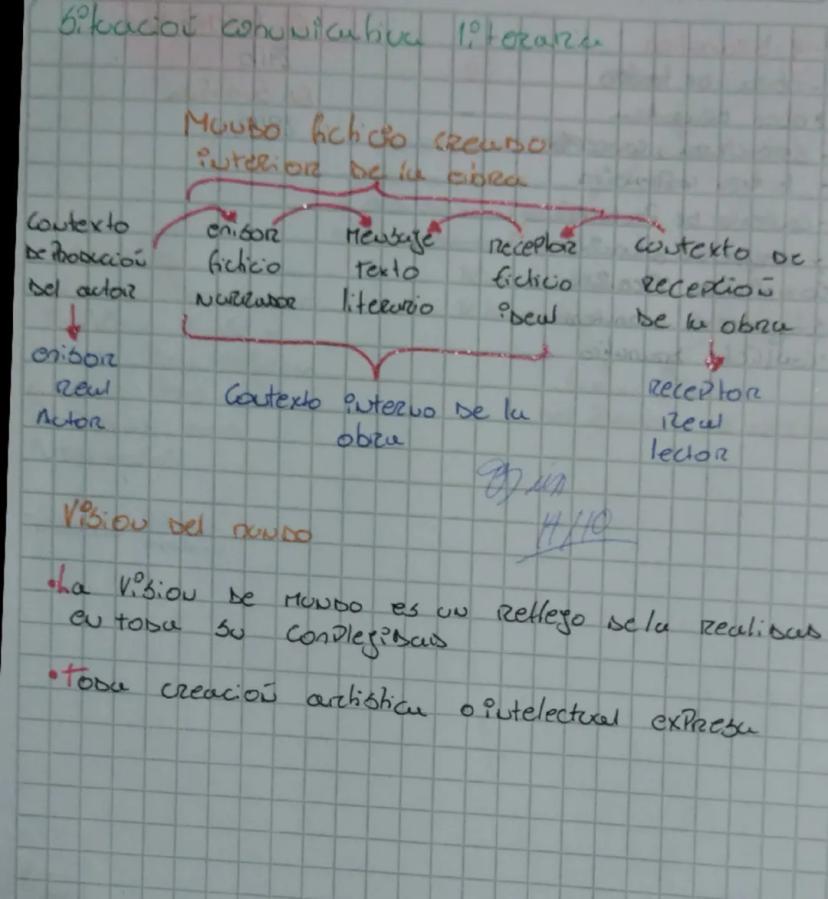 Situación comunicativa literaria
Mundo ficticio creado
interior de la obra
Contexto
de producción
del actor
emisor
ficticio
narrador
Mensaje
texto
literario
receptor
ficticio
ideal
contexto de
recepción
de la obra
emisor
real
Actor
Contexto interno de la
obra
receptor
real
lector
Visión del mundo
•La visión de mundo es un reflejo dela realidad
en toda su complegidad
•Toda creación artística o intelectual expresa